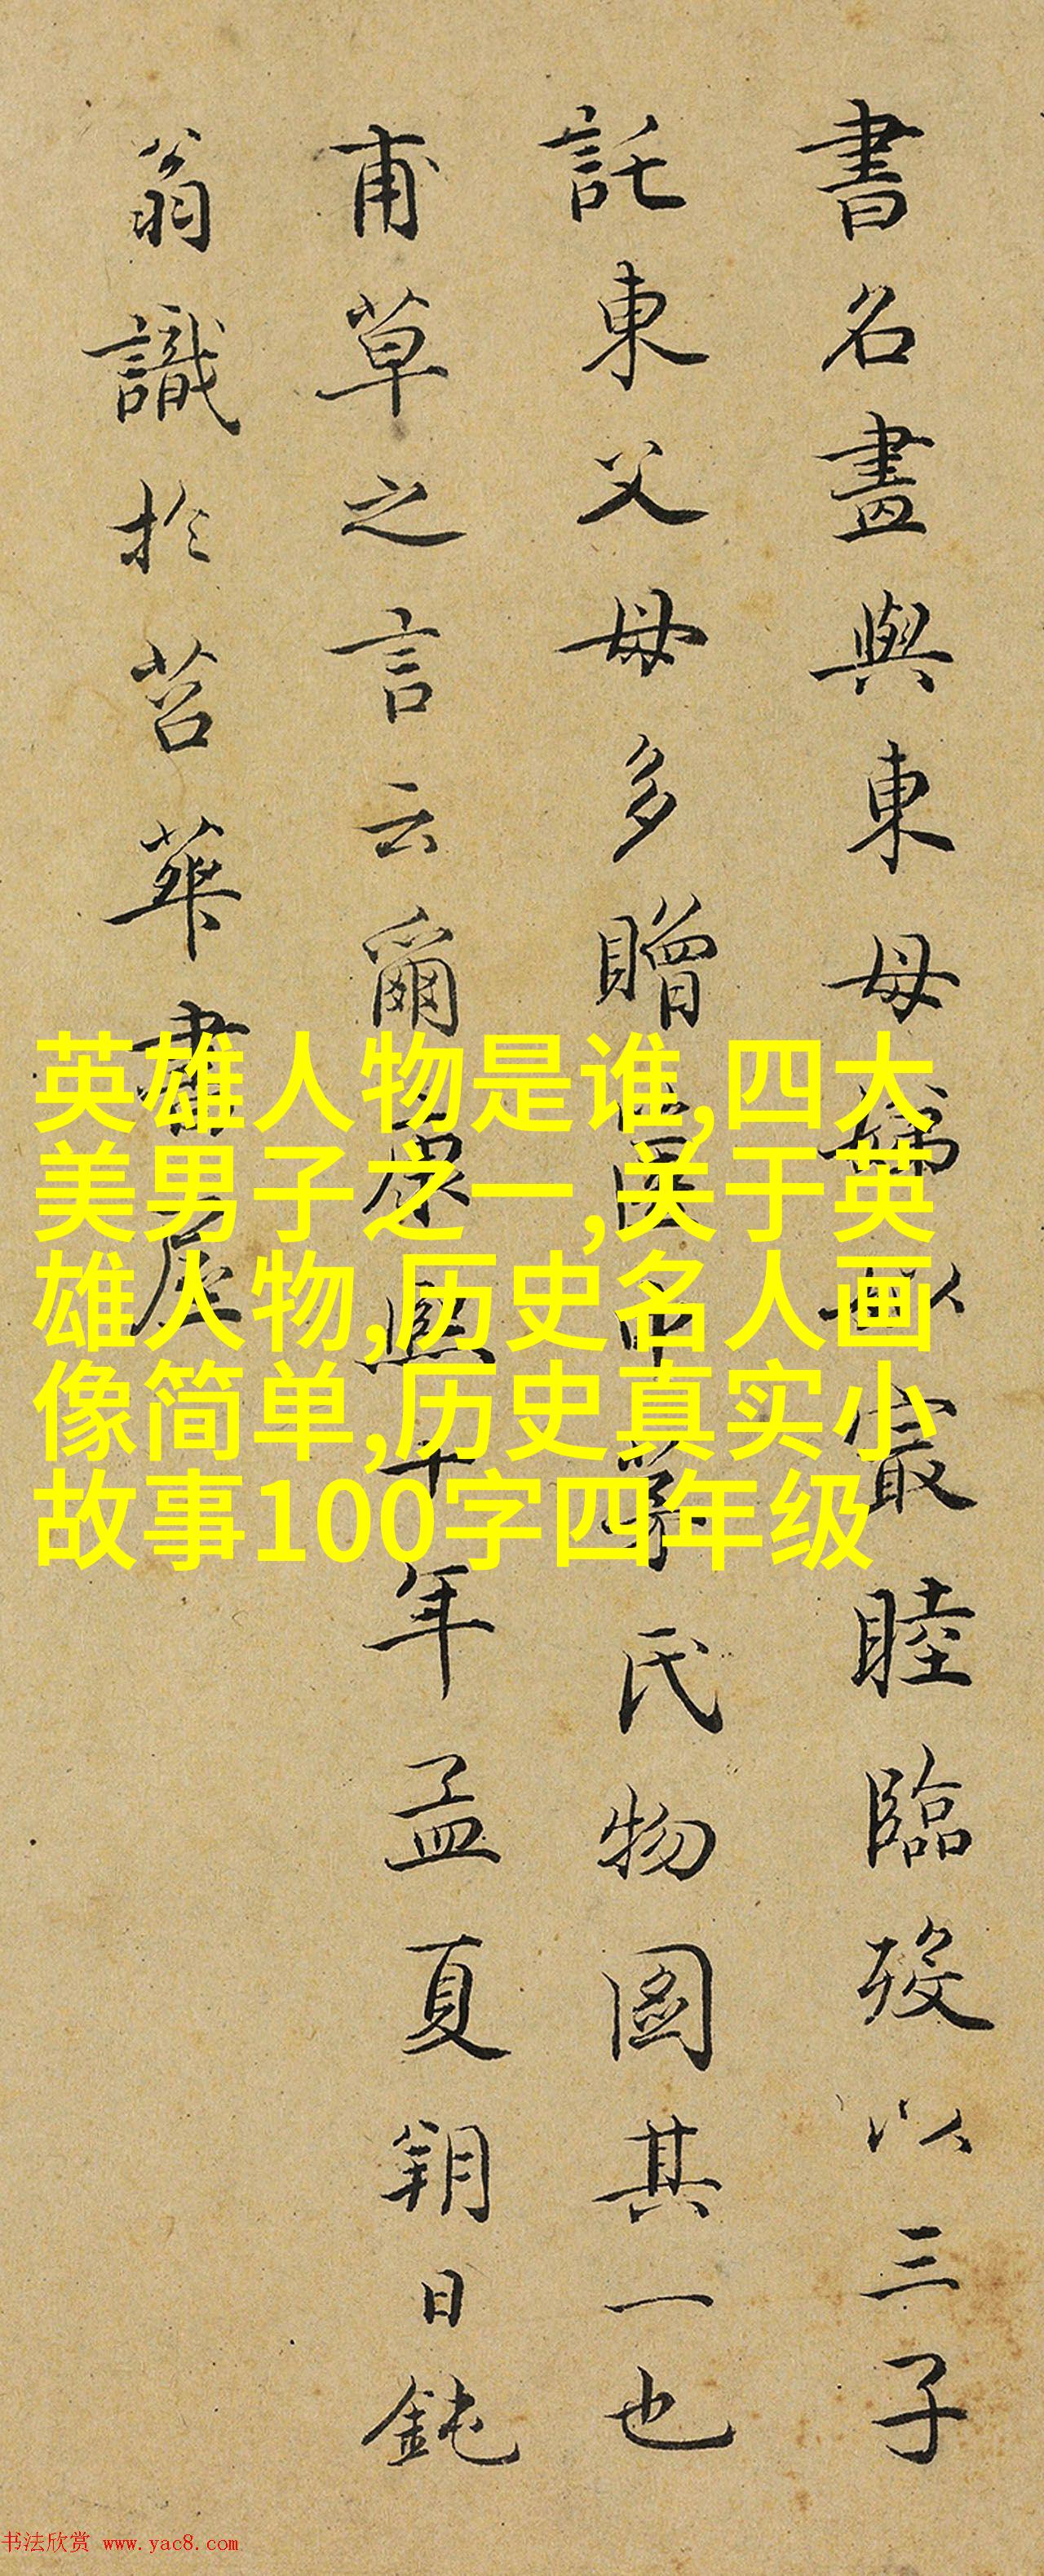 書名畫與東母姒㝡睦臨歿以三子
託東父母多贈氏物圖其一也
甫草之言云爾康熙十年孟夏朔日鈍
翁識於苕華書屋
英雄人物是谁,四大
美男子之一,关于英
雄人物,历史名人画
像简单,历史真实小
故事100字四年级
书法欣赏 www.yac8.com